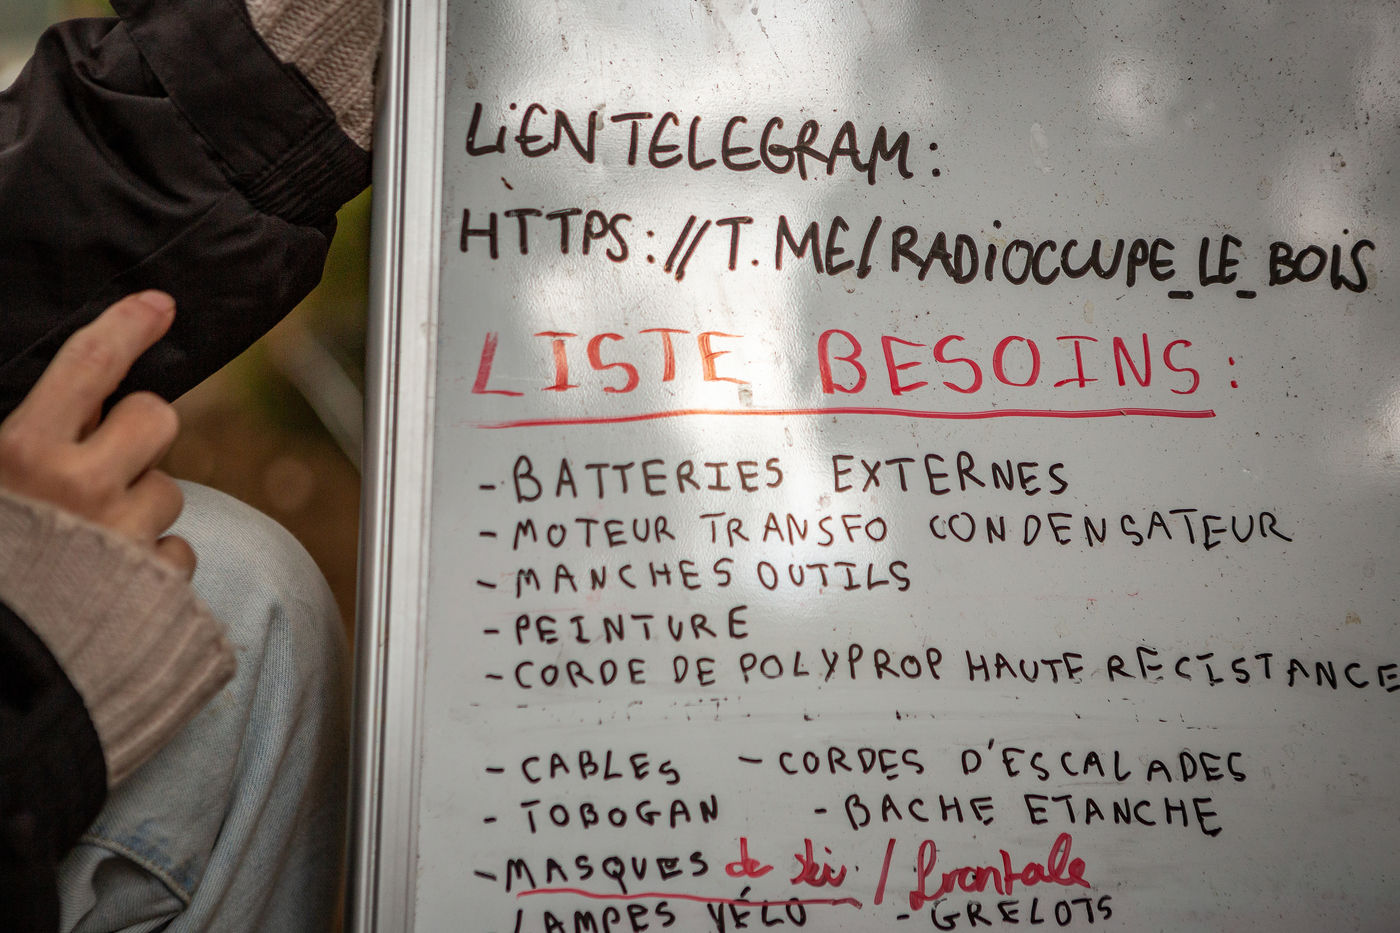 LIEN TELEGRAM :
HTTPS://T.ME/RADIOCCUPE_LE_BOIS
LISTE BESOINS :
- BATTERIES EXTERNES
- MOTEUR TRANSFO CONDENSATEUR
- MANCHES OUTILS
- PEINTURE
- CORDE DE POLYPROP HAUTE RECISTANCE
- CABLES - CORDES D'ESCALADES
- TOBOGAN - BACHE ETANCHE
- MASQUES de ski / frontale
LAMPES VÉLO - GRELOTS